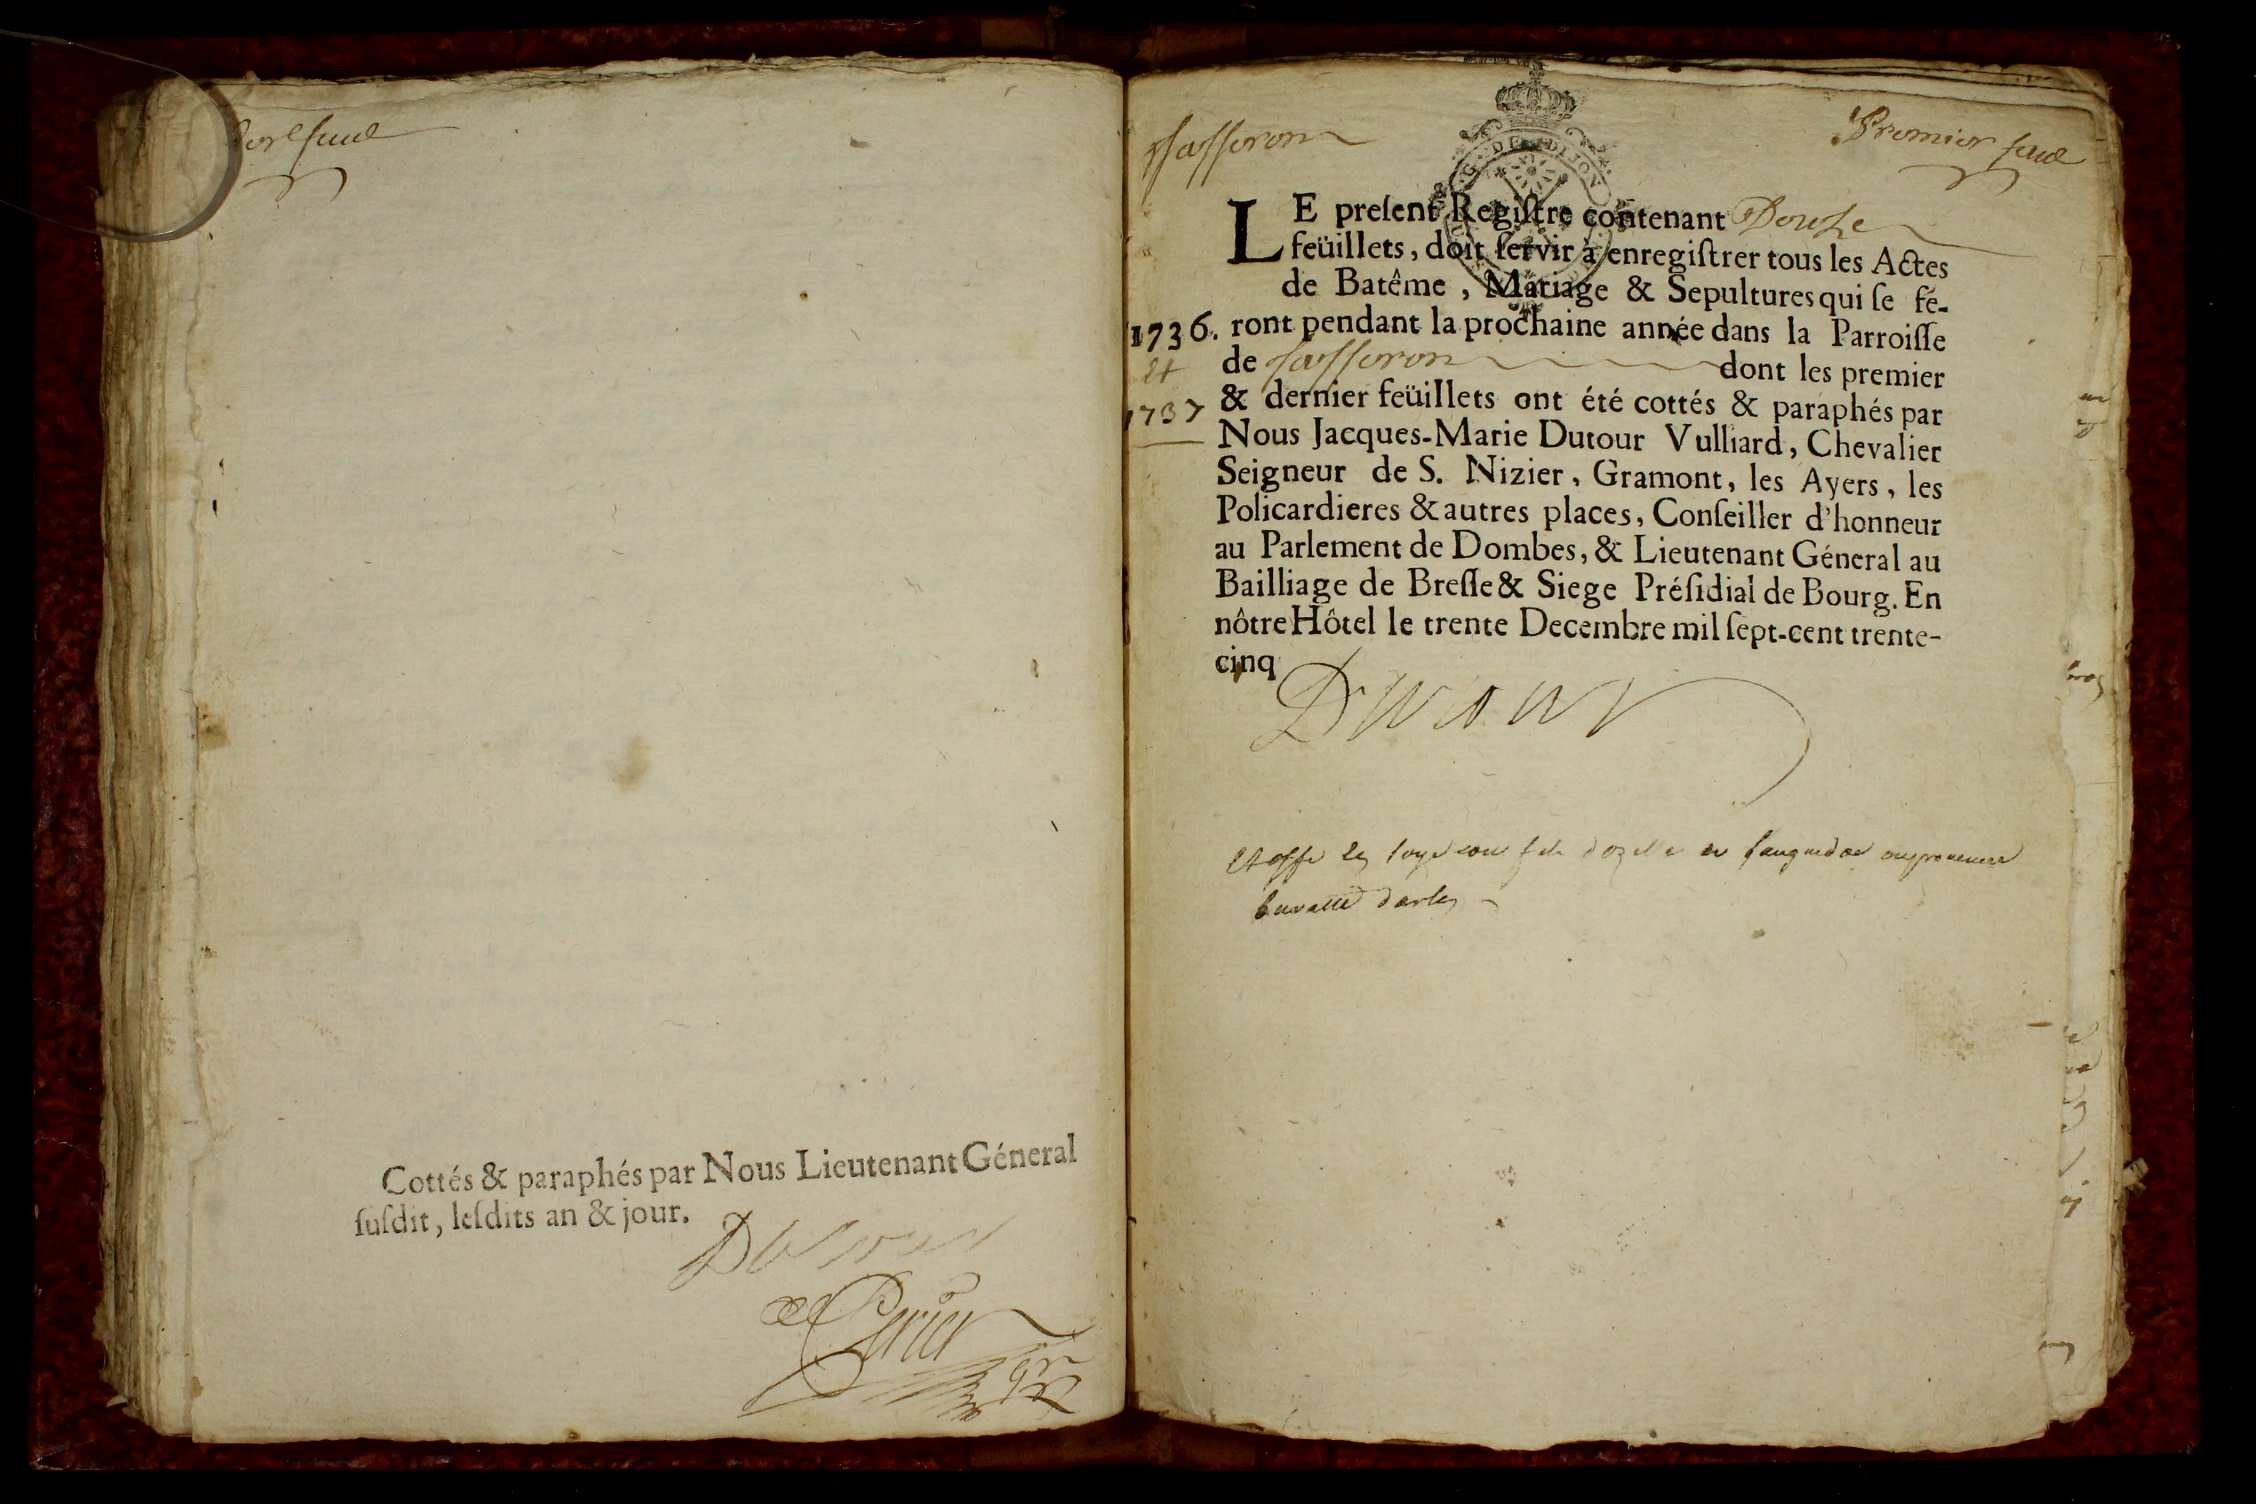 Cottés & paraphés par Nous Lieutenant Géneral
ſuſdit, leſdits an & jour.
Saſſeron
Premier
G. DE DIJON
LE preſent Regiſtre contenant Douze
feüillets, doit ſervir à enregiſtrer tous les Actes
de Batême, Mariage & Sepultures qui ſe fe-
1736. ront pendant la prochaine année dans la Parroiſſe
et
de Saſſeron dont les premier
1737
& dernier feüillets ont été cottés & paraphés par
Nous Jacques-Marie Dutour Vulliard, Chevalier
Seigneur de S. Nizier, Gramont, les Ayers, les
Policardieres & autres places, Conſeiller d'honneur
au Parlement de Dombes, & Lieutenant Géneral au
Bailliage de Breſſe & Siege Préſidial de Bourg. En
nôtre Hôtel le trente Decembre mil ſept-cent trente-
cinq
Dutour